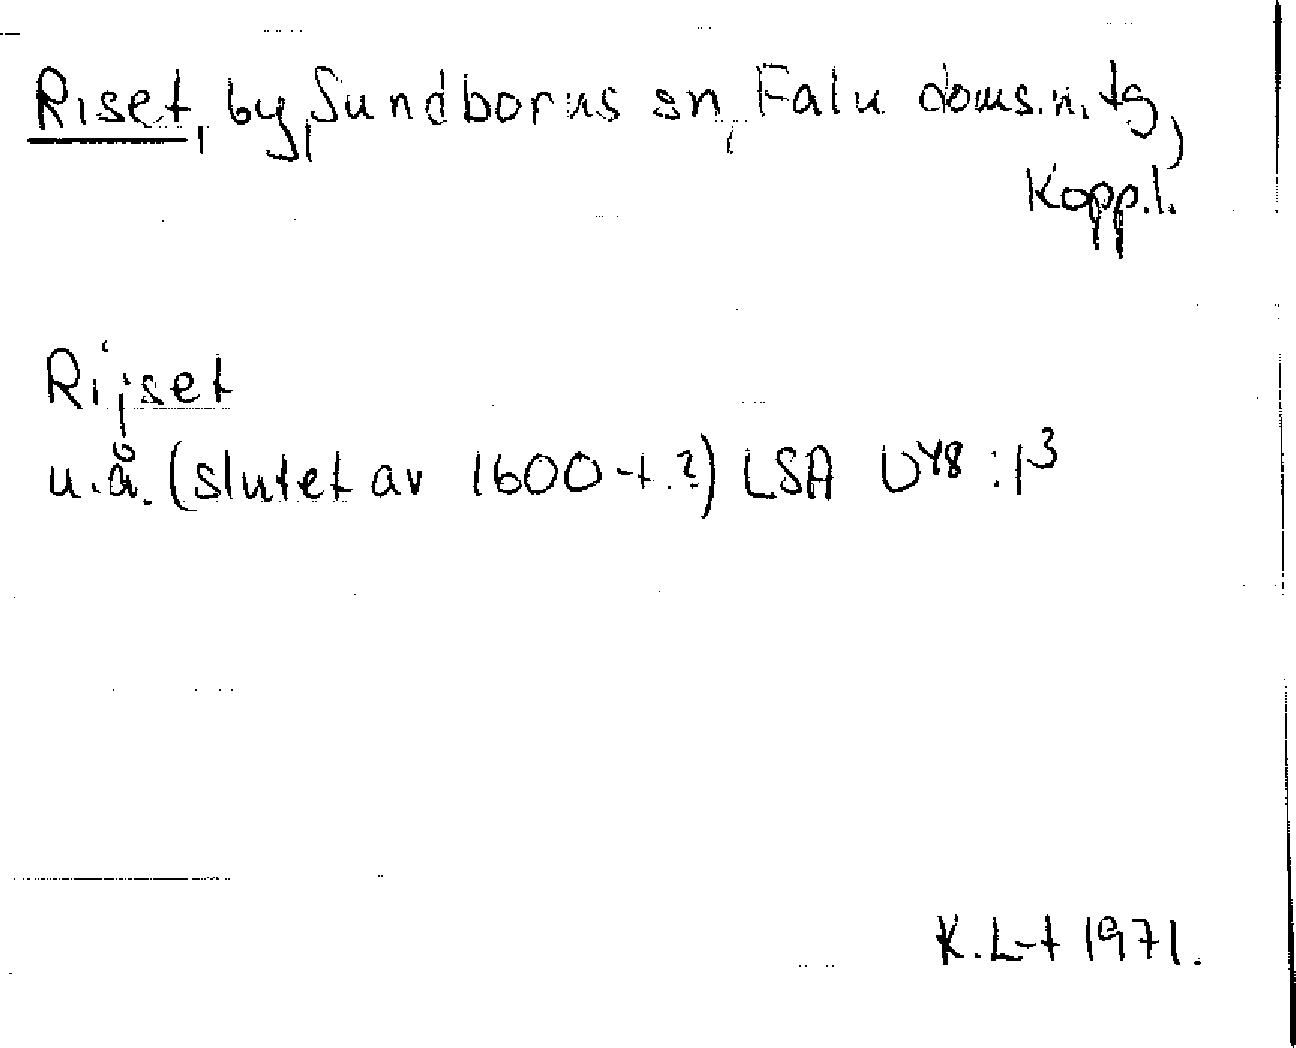 Riset, by, Sundborns sn, Falu doms.n. tg,
Kopp.l.
Rijset
u.å. (slutet av 1600-t.?) LSA U48:1³
K.L-t 1971.